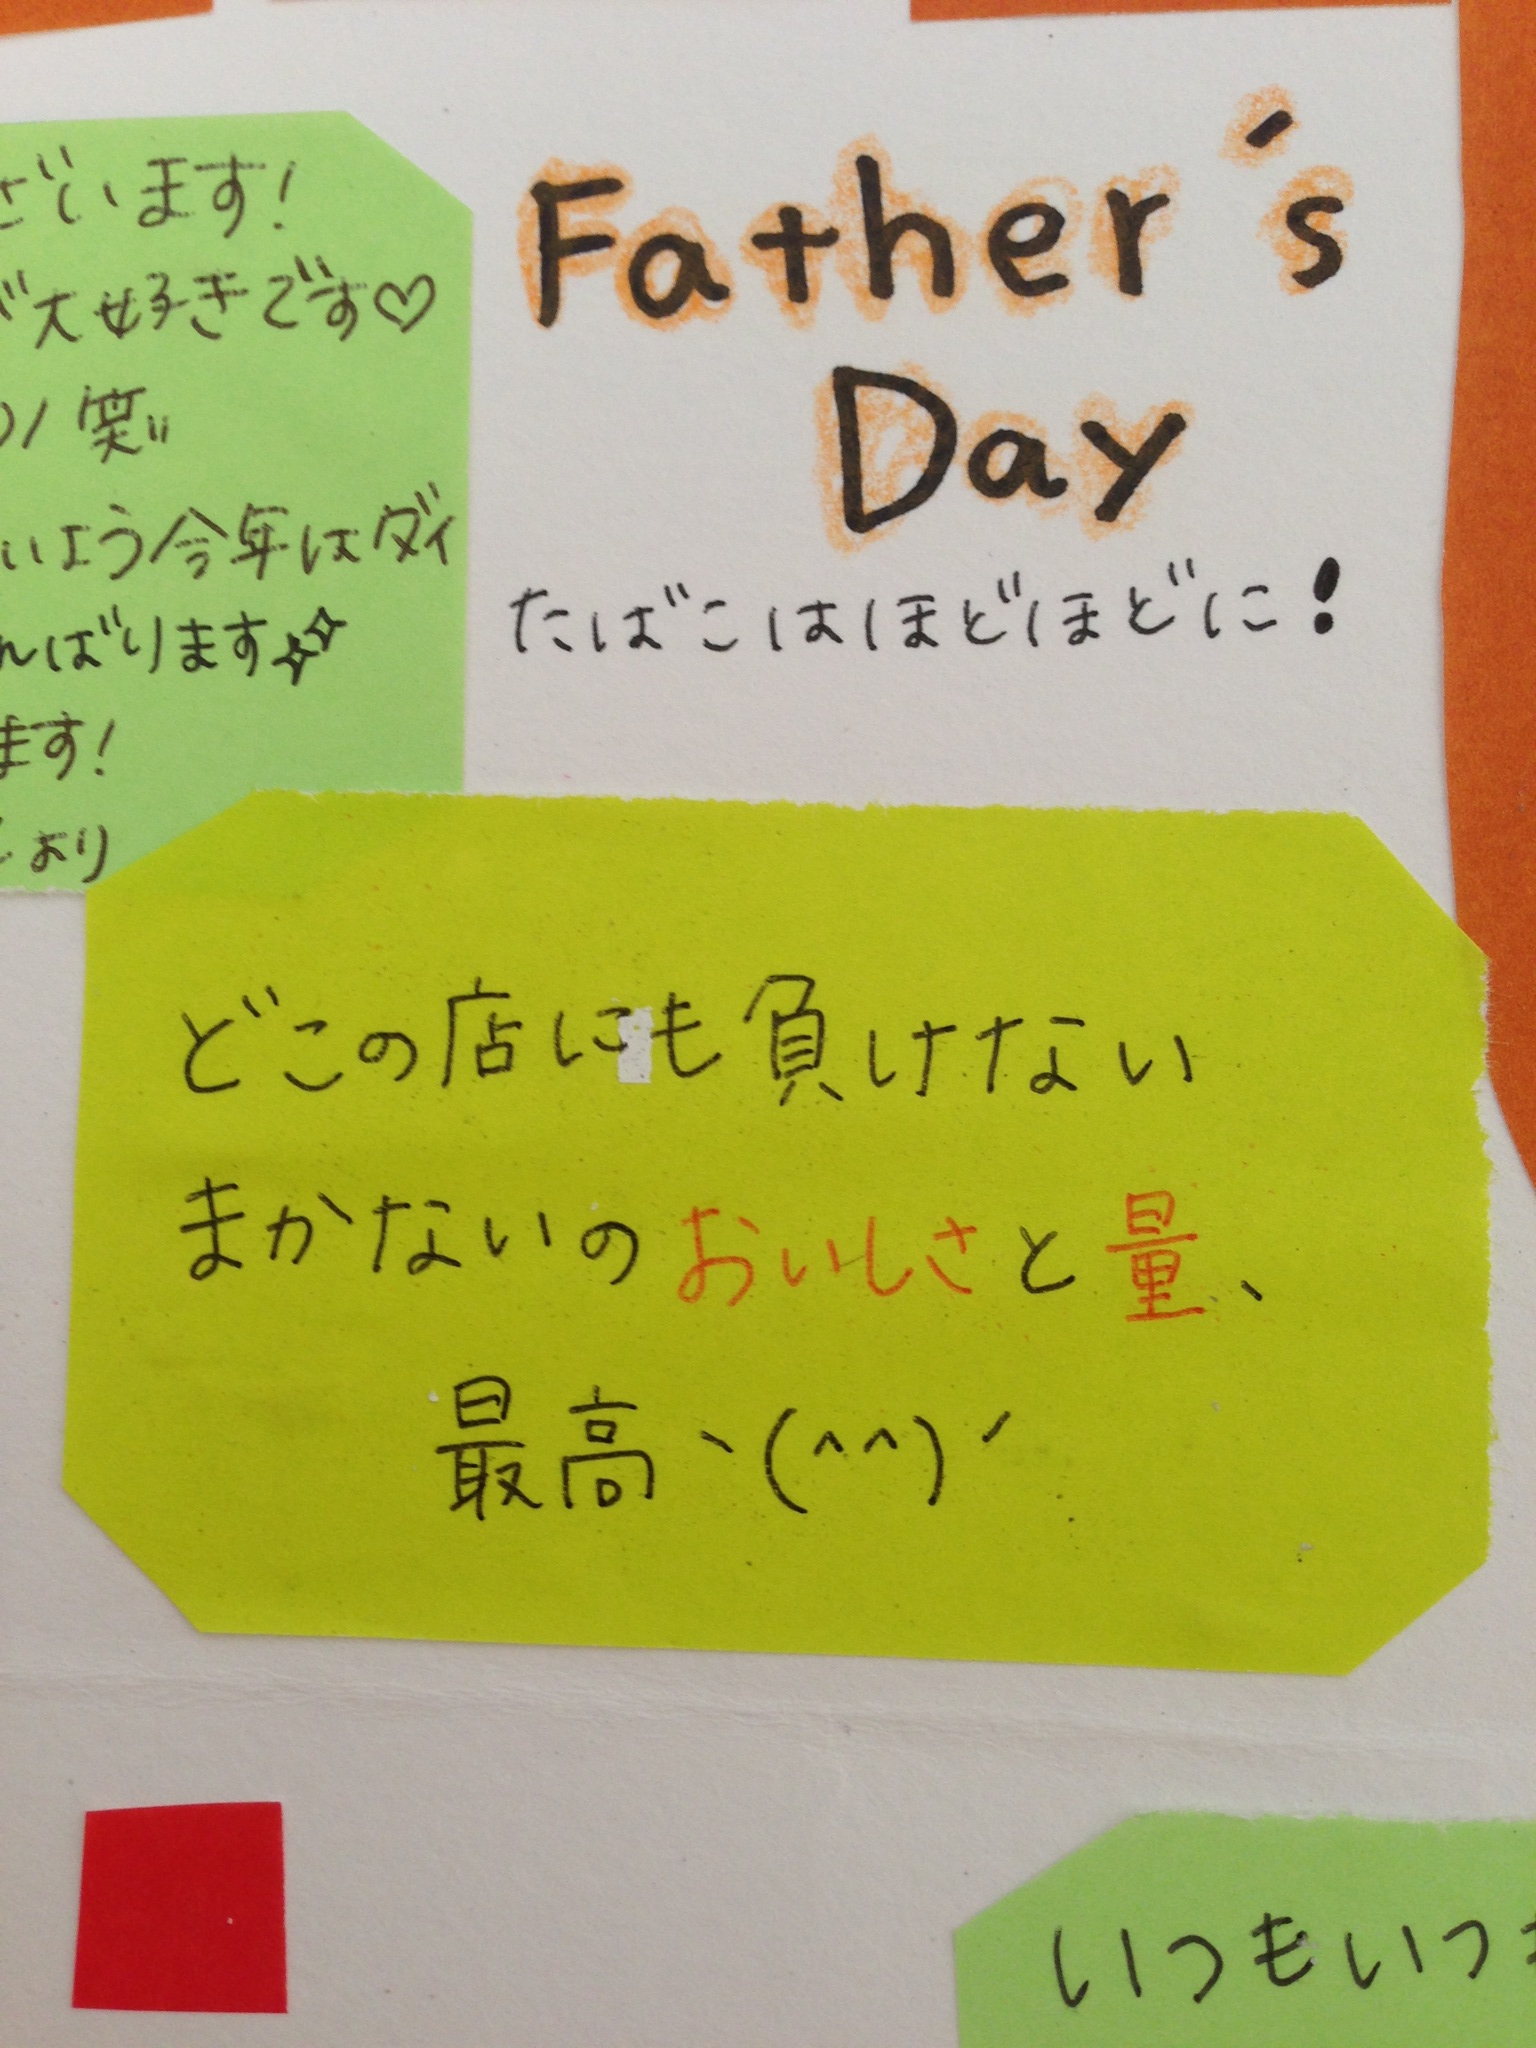 ざいます!
が大好きです♡
笑
いよう今年はダイ
んばります
ます!
より
Father's
Day
たばこはほどほどに!
どこの店にも負けない
まかないのおいしさと量、
最高ヽ(^^)ノ
いつもいつも